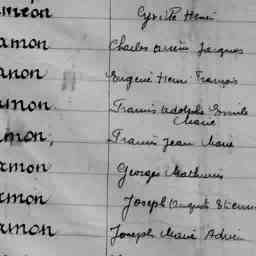 Cyrille Henri
amon Charles
anon Eugène Henri François
amon Francis Adolphe Emile
Marie
amon, Francis Jean Marie
amon Georges Mathurin
amon Joseph Auguste Etienne
amon Joseph Marie Adrien